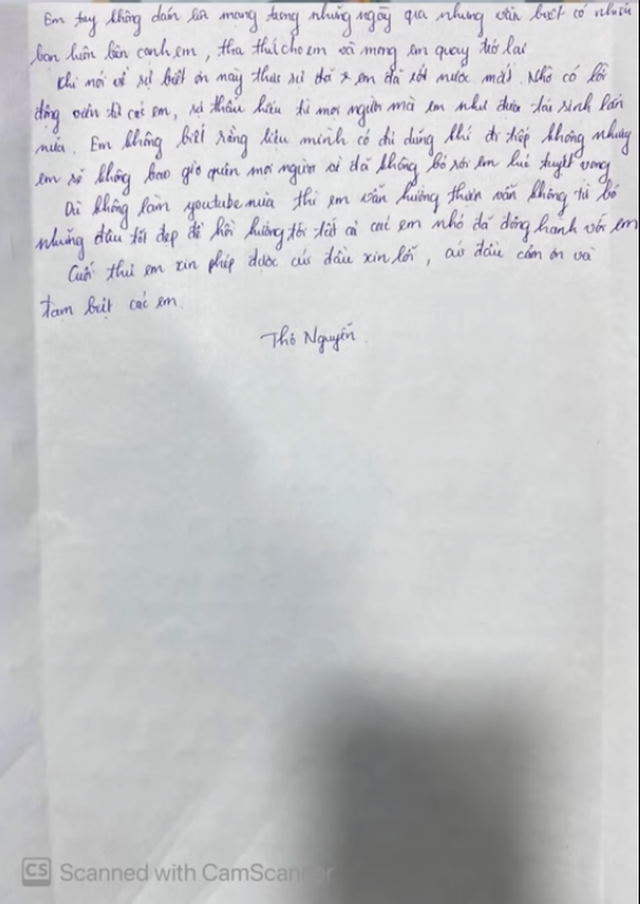 Em tuy không dám lên mạng trong những ngày qua nhưng vẫn biết có nhiều
bạn luôn bên cạnh em, tha thứ cho em và mong em quay trở lại
Khi nói về sự biết ơn này thực sự đã em đã rớt nước mắt. Nhờ có lời
động viên từ các em, sự thấu hiểu từ mọi người mà em như được tái sinh lần
nữa. Em không biết rằng liệu mình có đủ dũng khí đi tiếp không nhưng
em sẽ không bao giờ quên mọi người vì đã không bỏ rơi em lúc tuyệt vọng
Dù không làm youtube nữa thì em vẫn hướng thiện vẫn không từ bỏ
những điều tốt đẹp để hồi hướng tới tất cả các em nhỏ đã đồng hành với em
Cuối thư em xin phép được cúi đầu xin lỗi, cúi đầu cảm ơn và
tạm biệt các em
Thơ Nguyễn
CS Scanned with CamScanner